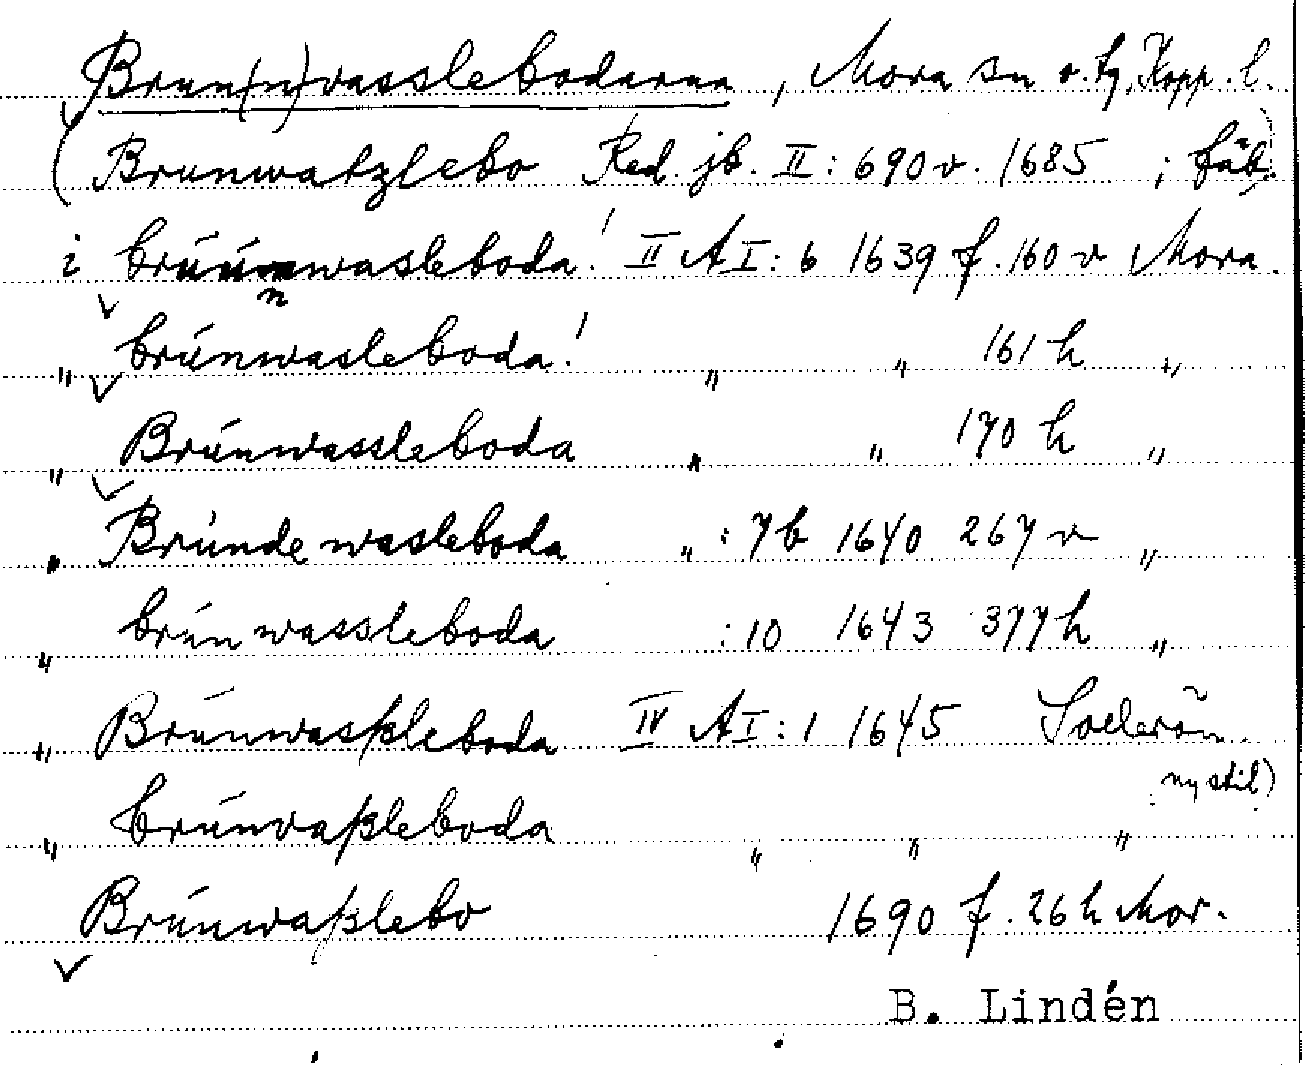 Brun(n)vasslebodarna, Mora sn o. tg, Kopp. l.
(Brunwatzlebo Red. jb. II: 690 v. 1685 ; fäb.)
i brúúnwasleboda! II A I: 6 1639 f. 160 v Mora.
n
" brúnwasleboda! " " 161 h "
" Brúnwassleboda " " 170 h "
" Brúndewasleboda " : 7b 1640 267 v "
" brúnwassleboda : 10 1643 377 h "
" Brúnwasßleboda IV A I: 1 1645 Sollerön
ny stil)
" brúnvaßleboda " " "
Brúnwaßlebo 1690 f. 26 h Mor.
B. Lindén